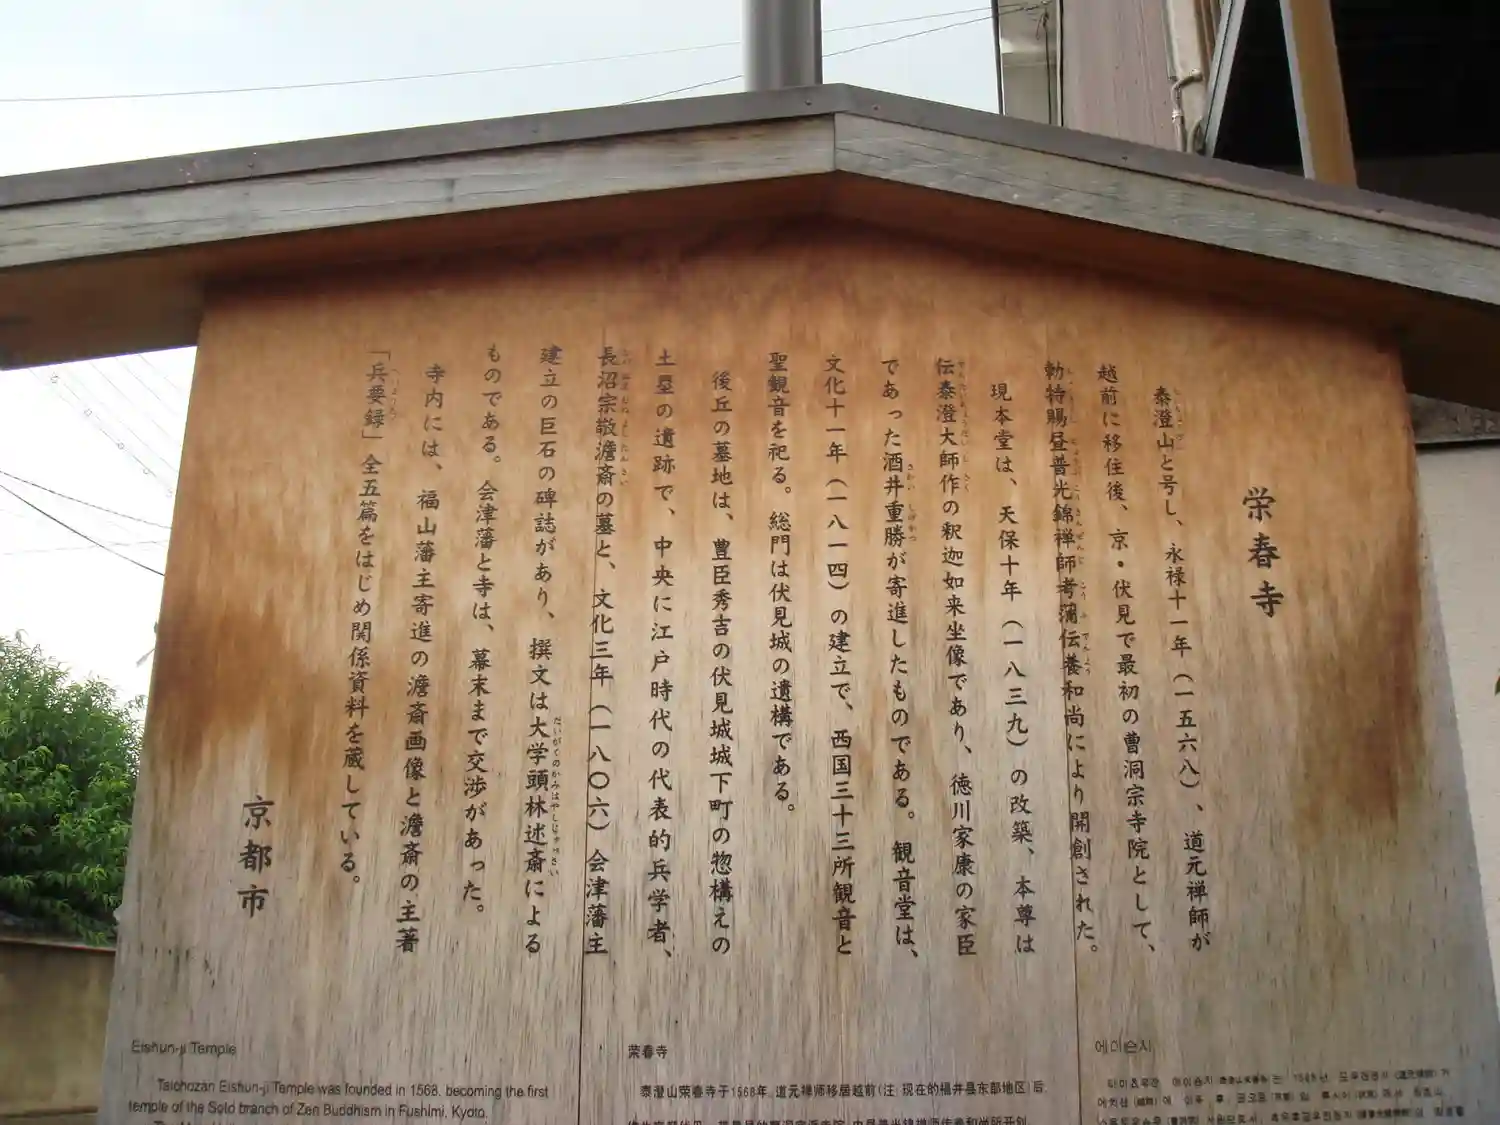 栄春寺
泰澄山と号し、永禄十一年(一五六八)、道元禅師が
越前に移住後、京・伏見で最初の曹洞宗寺院として、
勅特賜昼普光錦禅師考蒲伝養和尚により開創された。
現本堂は、天保十年(一八三九)の改築、本尊は
伝泰澄大師作の釈迦如来坐像であり、徳川家康の家臣
であった酒井重勝が寄進したものである。観音堂は、
文化十一年(一八一四)の建立で、西国三十三所観音と
聖観音を祀る。総門は伏見城の遺構である。
後丘の墓地は、豊臣秀吉の伏見城城下町の惣構えの
土塁の遺跡で、中央に江戸時代の代表的兵学者、
長沼宗敬澹斎の墓と、文化三年(一八〇六)会津藩主
建立の巨石の碑誌があり、撰文は大学頭林述斎による
ものである。会津藩と寺は、幕末まで交渉があった。
寺内には、福山藩主寄進の澹斎画像と澹斎の主著
「兵要録」全五篇をはじめ関係資料を蔵している。
京都市
Eishun-ji Temple
Taichozan Eishun-ji Temple was founded in 1568, becoming the first
temple of the Soto branch of Zen Buddhism in Fushimi, Kyoto.
荣春寺
泰澄山荣春寺于1568年，道元禅师移居越前(注:现在的福井县东部地区)后，
에이슌지